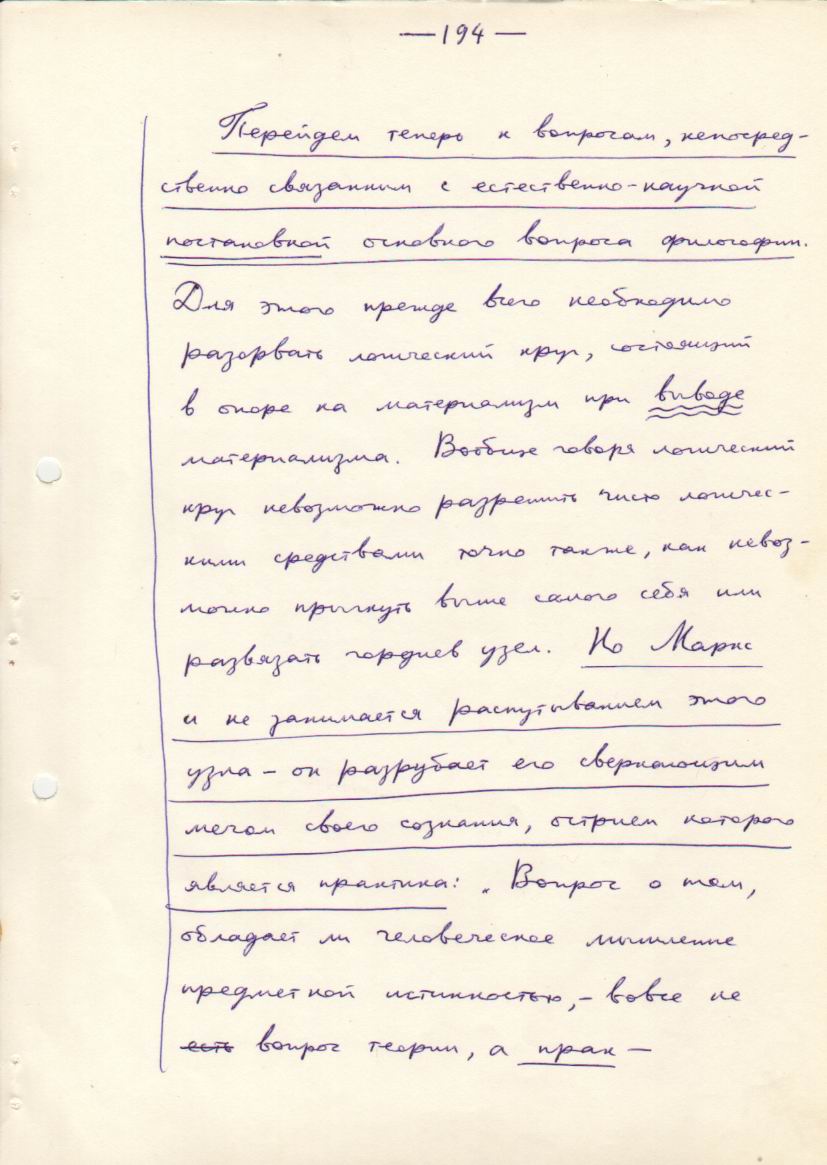 — 194 —
Перейдем теперь к вопросам, непосред-
ственно связанным с естественно-научной
постановкой основного вопроса философии.
Для этого прежде всего необходимо
разорвать логический круг, состоящий
в опоре на материализм при выводе
материализма. Вообще говоря логический
круг невозможно разрешить чисто логичес-
кими средствами точно также, как невоз-
можно прыгнуть выше самого себя или
развязать гордиев узел. Но Маркс
и не занимается распутыванием этого
узла – он разрубает его сверкающим
мечом своего сознания, острием которого
является практика: „Вопрос о том,
обладает ли человеческое мышление
предметной истинностью, – вовсе не
есть вопрос теории, а прак –